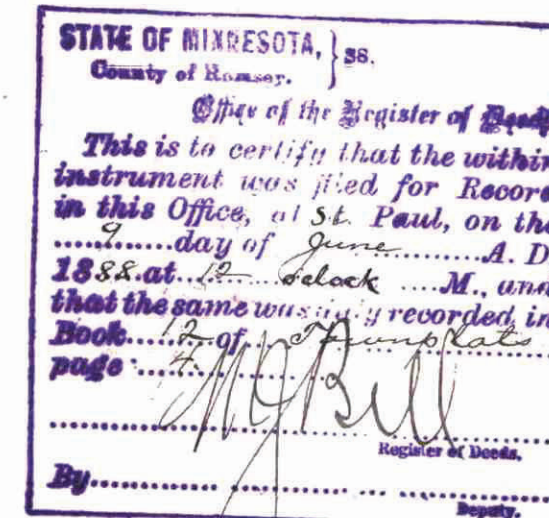 STATE OF MINNESOTA, } ss.
County of Ramsey.
Office of the Register of Deeds
This is to certify that the within
instrument was filed for Record
in this Office, at St. Paul, on the
9 day of June A. D
1888. at 12 oclock M., and
that the same was duly recorded in
Book 12 of Townplats
page 4.
M J Bell
Register of Deeds.
By
Deputy.